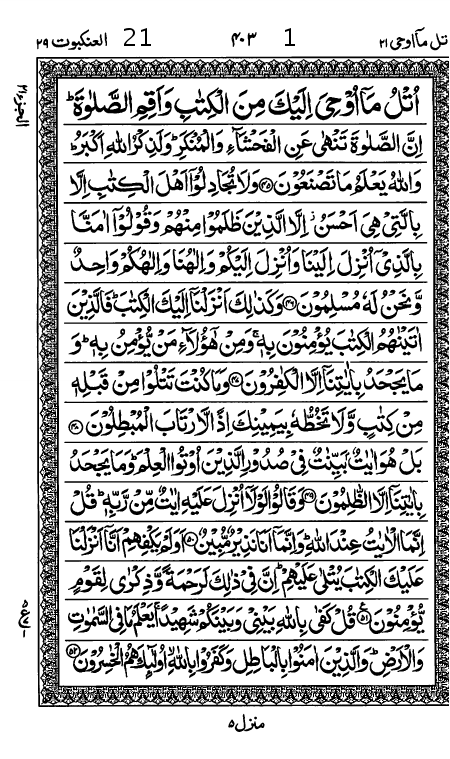 تل مآاوحی ۲۱ 1 ۴۰۳ 21 العنكبوت ۲۹
اُتْلُ مَاۤ اُوْحِیَ اِلَیْكَ مِنَ الْكِتٰبِ وَاَقِمِ الصَّلٰوةَ ؕ
اِنَّ الصَّلٰوةَ تَنْهٰی عَنِ الْفَحْشَآءِ وَالْمُنْكَرِ ؕ وَلَذِكْرُ اللّٰهِ اَكْبَرُ ؕ
وَاللّٰهُ یَعْلَمُ مَا تَصْنَعُوْنَ ﴿۴۵﴾ وَلَا تُجَادِلُوْۤا اَهْلَ الْكِتٰبِ اِلَّا
بِالَّتِیْ هِیَ اَحْسَنُ ۖ اِلَّا الَّذِیْنَ ظَلَمُوْا مِنْهُمْ وَقُوْلُوْۤا اٰمَنَّا
بِالَّذِیْۤ اُنْزِلَ اِلَیْنَا وَاُنْزِلَ اِلَیْكُمْ وَاِلٰهُنَا وَاِلٰهُكُمْ وَاحِدٌ
وَّنَحْنُ لَهٗ مُسْلِمُوْنَ ﴿۴۶﴾ وَكَذٰلِكَ اَنْزَلْنَاۤ اِلَیْكَ الْكِتٰبَ ؕ فَالَّذِیْنَ
اٰتَیْنٰهُمُ الْكِتٰبَ یُؤْمِنُوْنَ بِهٖ ۚ وَمِنْ هٰۤؤُلَآءِ مَنْ یُّؤْمِنُ بِهٖ ؕ وَ
مَا یَجْحَدُ بِاٰیٰتِنَاۤ اِلَّا الْكٰفِرُوْنَ ﴿۴۷﴾ وَمَا كُنْتَ تَتْلُوْا مِنْ قَبْلِهٖ
مِنْ كِتٰبٍ وَّلَا تَخُطُّهٗ بِیَمِیْنِكَ اِذًا لَّارْتَابَ الْمُبْطِلُوْنَ ﴿۴۸﴾
بَلْ هُوَ اٰیٰتٌۢ بَیِّنٰتٌ فِیْ صُدُوْرِ الَّذِیْنَ اُوْتُوا الْعِلْمَ ؕ وَمَا یَجْحَدُ
بِاٰیٰتِنَاۤ اِلَّا الظّٰلِمُوْنَ ﴿۴۹﴾ وَقَالُوْا لَوْلَاۤ اُنْزِلَ عَلَیْهِ اٰیٰتٌ مِّنْ رَّبِّهٖ ؕ قُلْ
اِنَّمَا الْاٰیٰتُ عِنْدَ اللّٰهِ ؕ وَاِنَّمَاۤ اَنَا نَذِیْرٌ مُّبِیْنٌ ﴿۵۰﴾ اَوَلَمْ یَكْفِهِمْ اَنَّاۤ اَنْزَلْنَا
عَلَیْكَ الْكِتٰبَ یُتْلٰی عَلَیْهِمْ ؕ اِنَّ فِیْ ذٰلِكَ لَرَحْمَةً وَّذِكْرٰی لِقَوْمٍ
یُّؤْمِنُوْنَ ﴿۵۱﴾ قُلْ كَفٰی بِاللّٰهِ بَیْنِیْ وَبَیْنَكُمْ شَهِیْدًا ۚ یَعْلَمُ مَا فِی السَّمٰوٰتِ
وَالْاَرْضِ ؕ وَالَّذِیْنَ اٰمَنُوْا بِالْبَاطِلِ وَكَفَرُوْا بِاللّٰهِ ۙ اُولٰٓئِكَ هُمُ الْخٰسِرُوْنَ ﴿۵۲﴾
الجزء ۲۱
منزل ۵